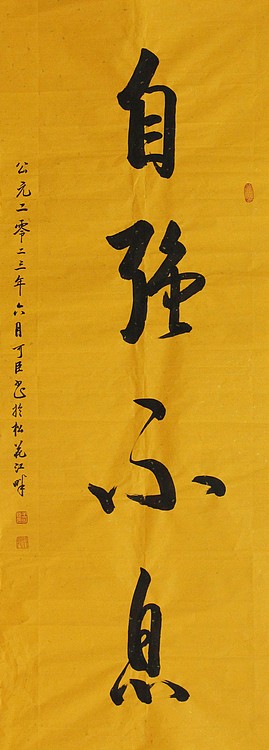 自强不息
公元二零二三年六月可臣书於松花江畔